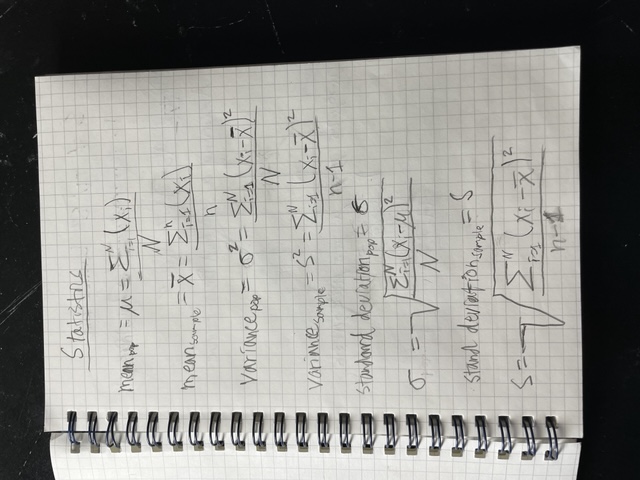 Statistics
mean_pop = μ = Σ_{i=1}^{N} (x_i) / N
mean_sample = x̄ = Σ_{i=1}^{n} (x_i) / n
variance_pop = σ² = Σ_{i=1}^{N} (x_i - x̄)² / N
variance_sample = s² = Σ_{i=1}^{N} (x_i - x̄)² / n-1
standard deviation_pop = σ
σ = √(Σ_{i=1}^{N} (x_i - μ)² / N)
stand deviation_sample = s
s = √(Σ_{i=1}^{N} (x_i - x̄)² / n-1)